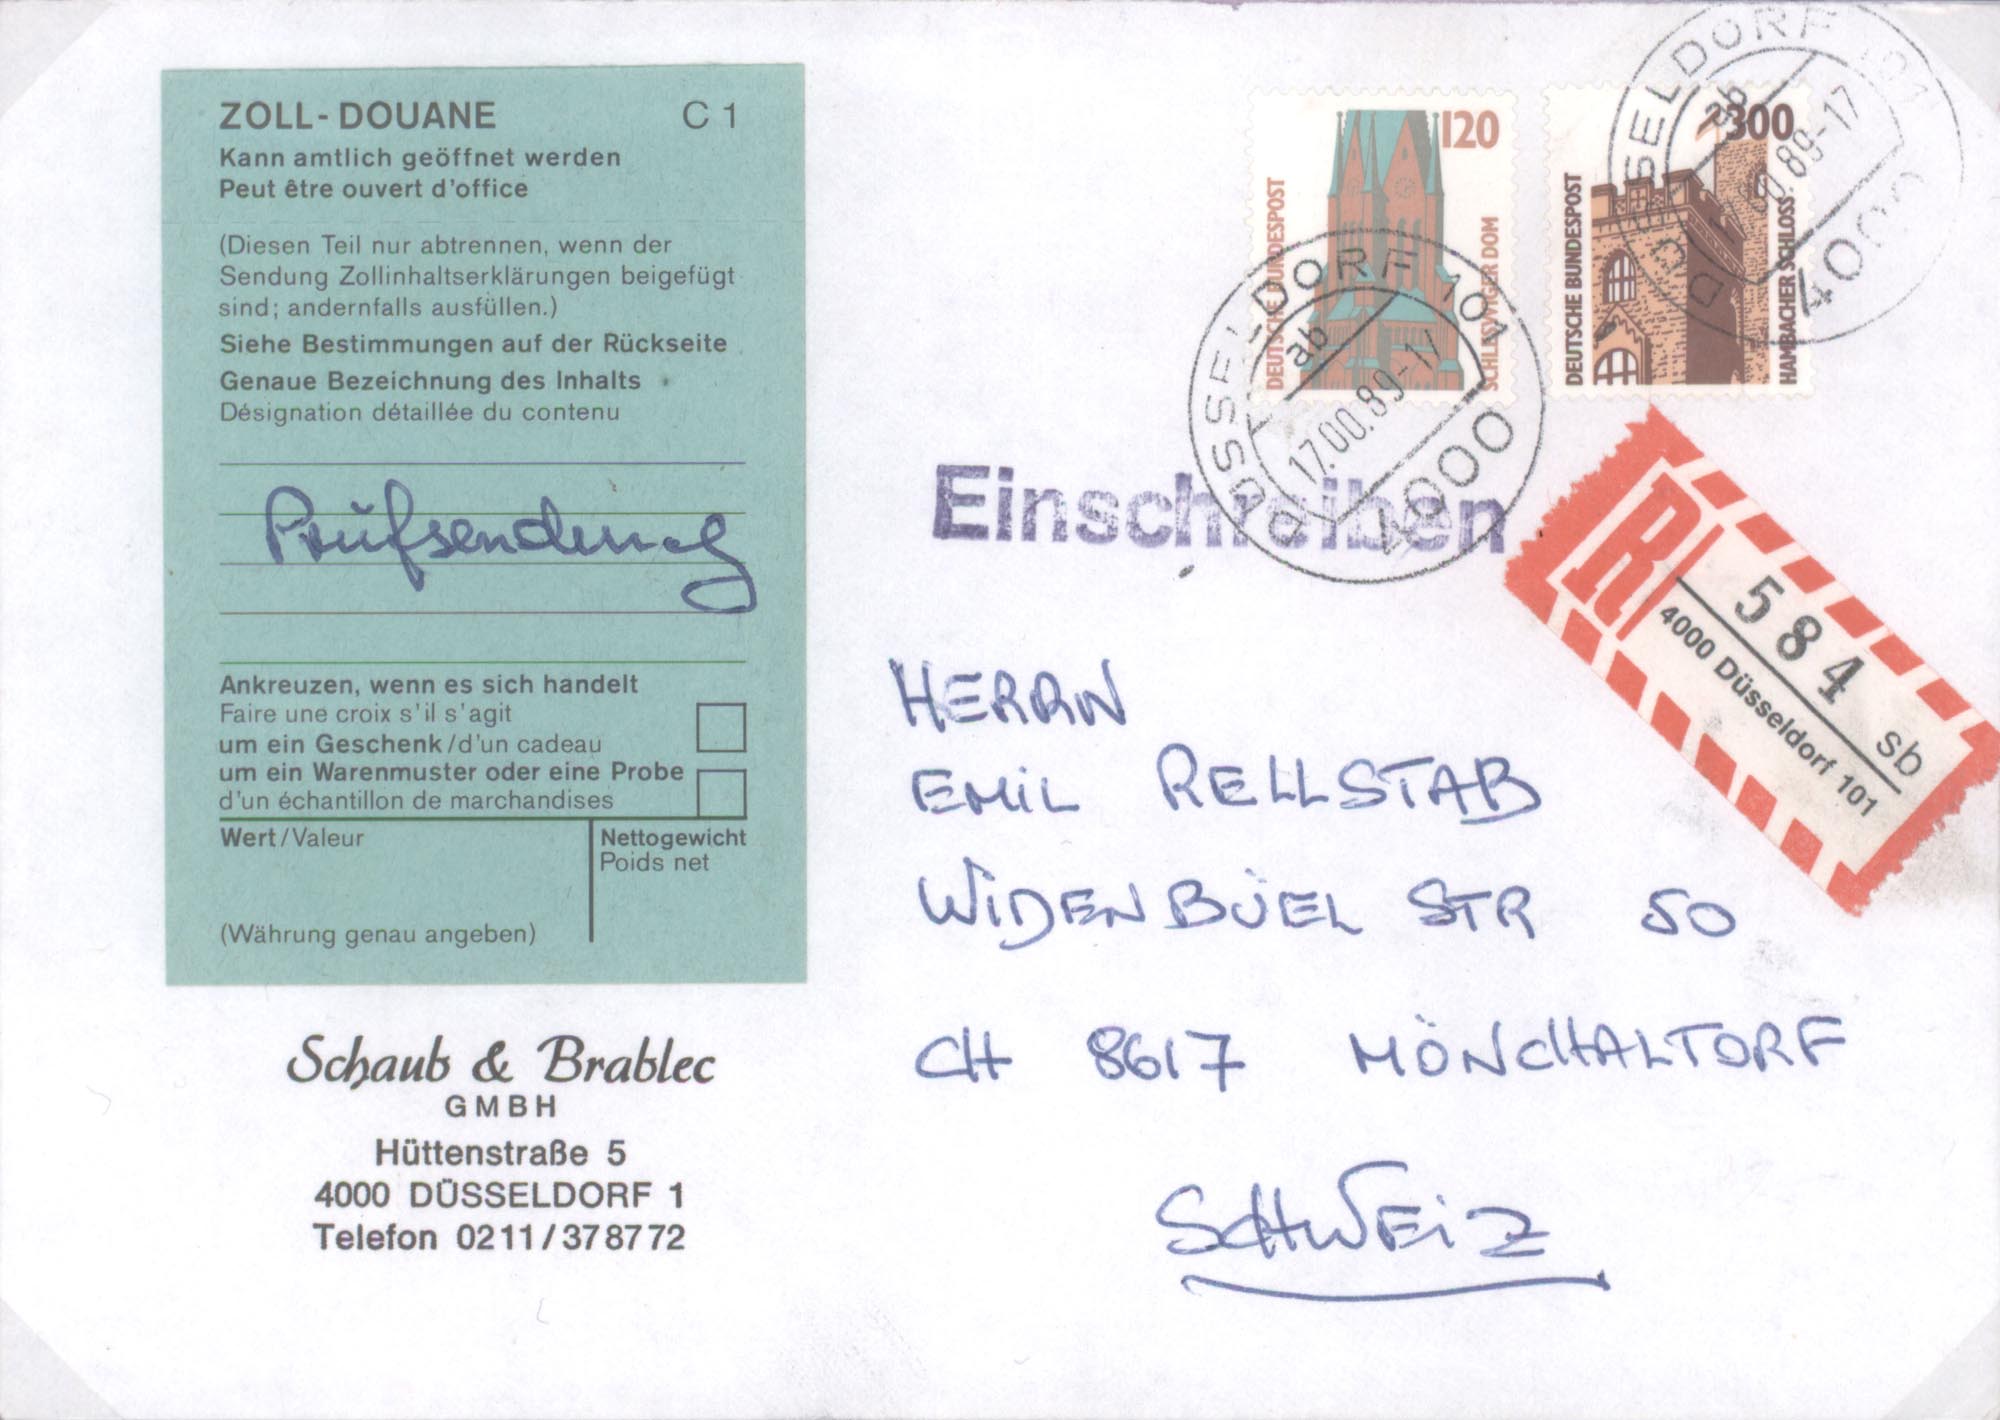 ZOLL-DOUANE C 1
Kann amtlich geöffnet werden
Peut être ouvert d'office
(Diesen Teil nur abtrennen, wenn der
Sendung Zollinhaltserklärungen beigefügt
sind; andernfalls ausfüllen.)
Siehe Bestimmungen auf der Rückseite
Genaue Bezeichnung des Inhalts
Désignation détaillée du contenu
Prüfsendung
Ankreuzen, wenn es sich handelt
Faire une croix s'il s'agit
um ein Geschenk/d'un cadeau
um ein Warenmuster oder eine Probe
d'un échantillon de marchandises
Wert/Valeur
Nettogewicht
Poids net
(Währung genau angeben)
Schaub & Brablec
GMBH
Hüttenstraße 5
4000 DÜSSELDORF 1
Telefon 0211/378772
120
DEUTSCHE BUNDESPOST
SCHLESWIGER DOM
300
DEUTSCHE BUNDESPOST
HAMBACHER SCHLOSS
DÜSSELDORF 101
ab
17.00.89-17
4000
DÜSSELDORF 101
ab
89-17
4000
Einschreiben
R
584
sb
4000 Düsseldorf 101
HERRN
EMIL RELLSTAB
WIDENBÜEL STR 50
CH 8617 MÖNCHALTORF
SCHWEIZ